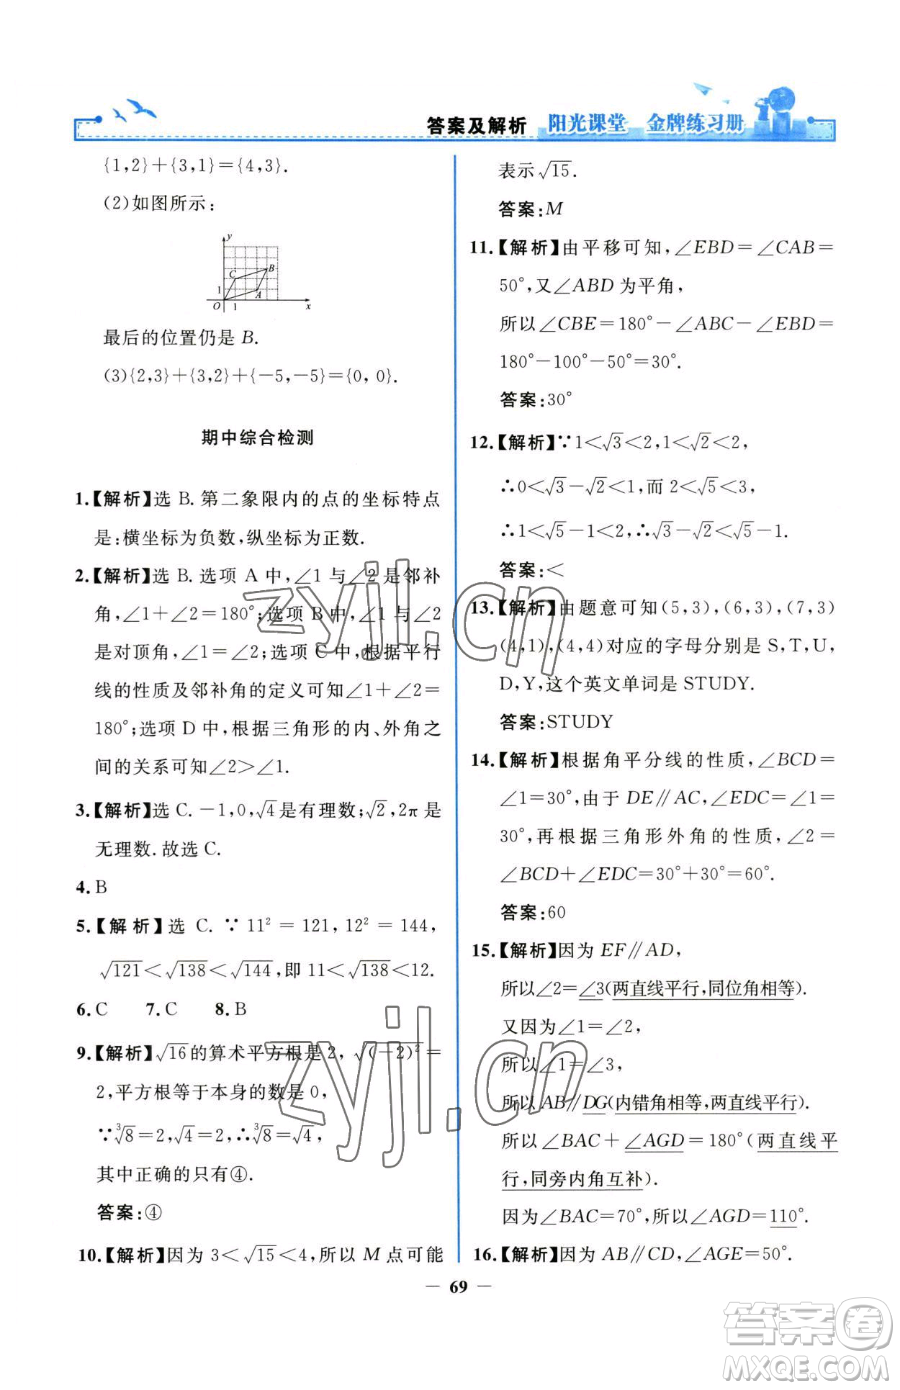 答案及解析 阳光课堂 金牌练习册
{1,2}+{3,1}={4,3}.
(2)如图所示:
y
C B
1 A
O 1 x
最后的位置仍是 B.
(3){2,3}+{3,2}+{-5,-5}={0,0}.
期中综合检测
1.【解析】选 B. 第二象限内的点的坐标特点
是:横坐标为负数,纵坐标为正数.
2.【解析】选 B. 选项 A 中,∠1 与∠2 是邻补
角,∠1+∠2=180°;选项 B 中,∠1 与∠2
是对顶角,∠1=∠2;选项 C 中,根据平行
线的性质及邻补角的定义可知∠1+∠2=
180°;选项 D 中,根据三角形的内、外角之
间的关系可知∠2>∠1.
3.【解析】选 C. -1,0,√4是有理数;√2,2π是
无理数.故选 C.
4. B
5.【解析】选 C. ∵ 11²=121,12²=144,
√121<√138<√144,即 11<√138<12.
6. C 7. C 8. B
9.【解析】√16的算术平方根是 2,√(-2)²=
2,平方根等于本身的数是 0,
∵³√8=2,√4=2,∴³√8=√4,
其中正确的只有④.
答案:④
10.【解析】因为 3<√15<4,所以 M 点可能
表示√15.
答案:M
11.【解析】由平移可知,∠EBD=∠CAB=
50°,又∠ABD 为平角,
所以∠CBE=180°-∠ABC-∠EBD=
180°-100°-50°=30°.
答案:30°
12.【解析】∵1<√3<2,1<√2<2,
∴0<√3-√2<1,而 2<√5<3,
∴1<√5-1<2,∴√3-√2<√5-1.
答案:<
13.【解析】由题意可知(5,3),(6,3),(7,3)
(4,1),(4,4)对应的字母分别是 S,T,U,
D,Y,这个英文单词是 STUDY.
答案:STUDY
14.【解析】根据角平分线的性质,∠BCD=
∠1=30°,由于 DE∥AC,∠EDC=∠1=
30°,再根据三角形外角的性质,∠2=
∠BCD+∠EDC=30°+30°=60°.
答案:60
15.【解析】因为 EF∥AD,
所以∠2=∠3(两直线平行,同位角相等).
又因为∠1=∠2,
所以∠1=∠3.
所以 AB∥DG(内错角相等,两直线平行).
所以∠BAC+∠AGD=180°(两直线平
行,同旁内角互补).
因为∠BAC=70°,所以∠AGD=110°.
16.【解析】因为 AB∥CD,∠AGE=50°.
— 69 —
zyjl.cn
zyjl.cn
答案圈
MXQE.COM